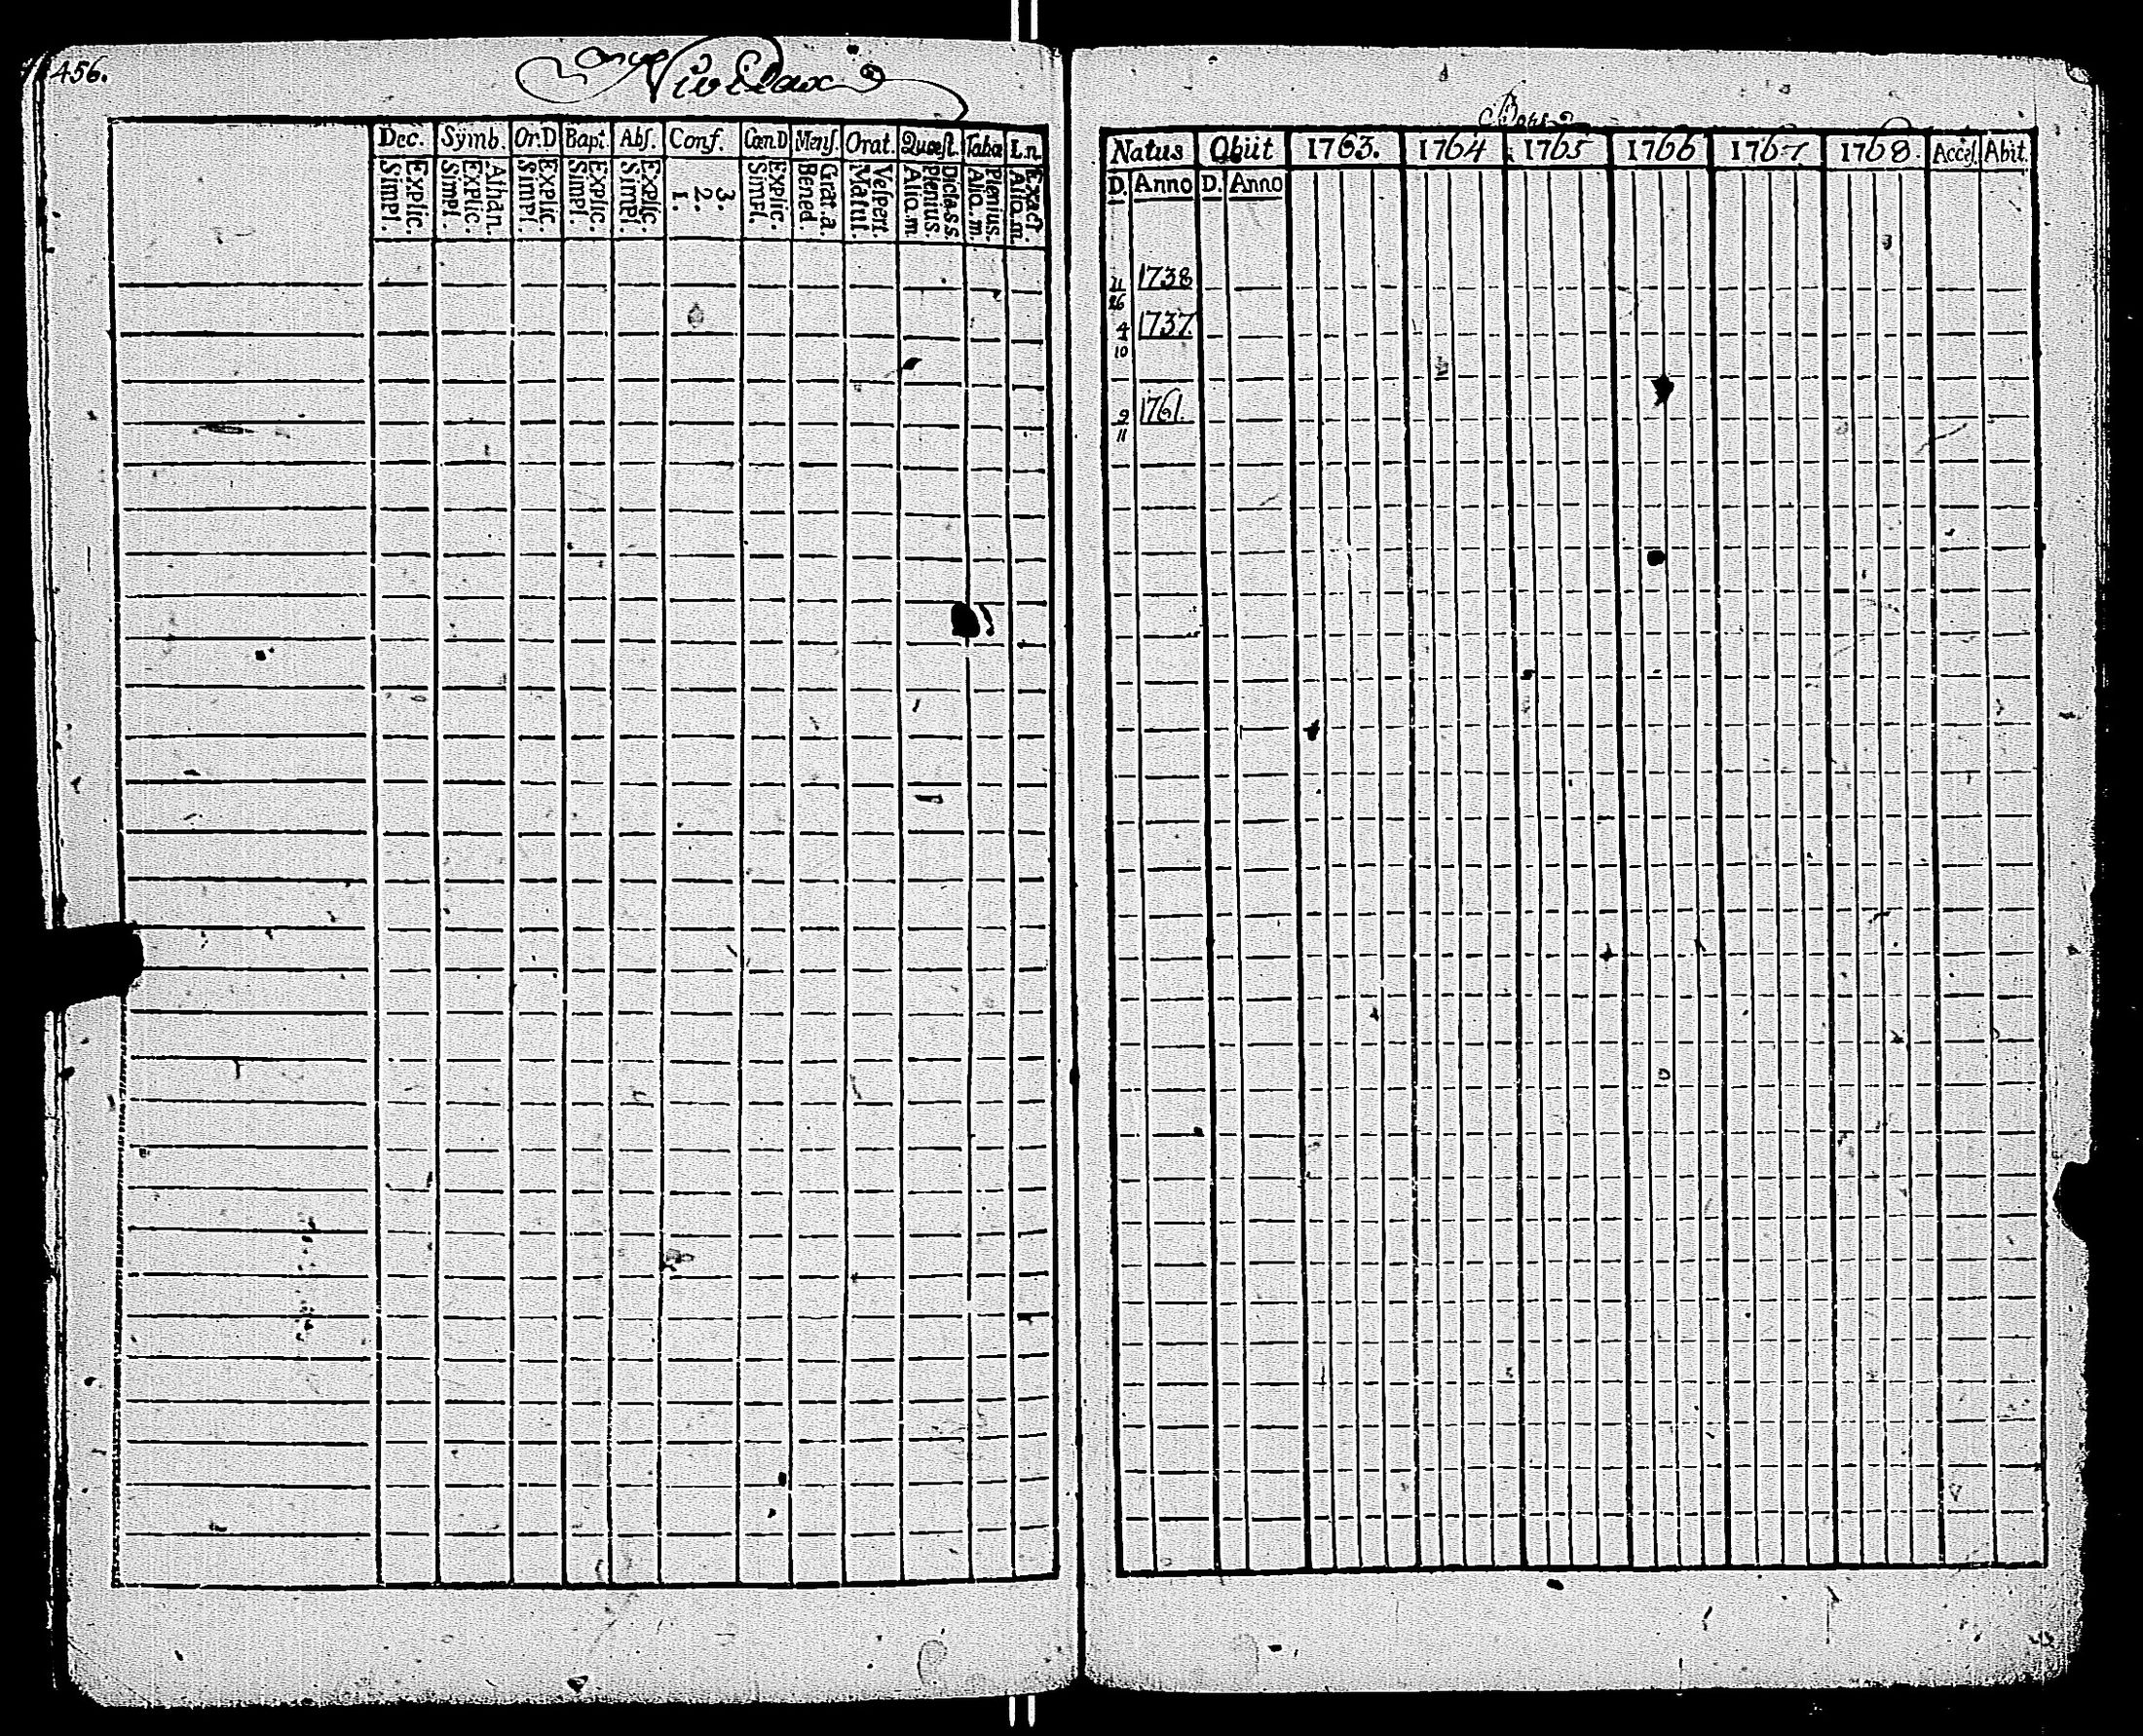 456.
Dec. Symb. Or.D Bapt. Abs. Conf. Cœn.D Mens. Orat. Quæst. Taba Ln.
Explic. Simpl. Athan. Explic. Simpl. Explic. Simpl. Explic. Simpl. Explic. Simpl. 3. 2. 1. Explic. Simpl. Grat. a. Bened. Vespert. Matut. Dicta. S.S. Plenius. Aliq.m Plenius. Aliq.m Exact. Aliq.m
Natus Obiit 1763. 1764 1765 1766 1767 1768. Acces. Abit.
D. Anno D. Anno
11 1738
26
4 1737.
10
9 1761.
11